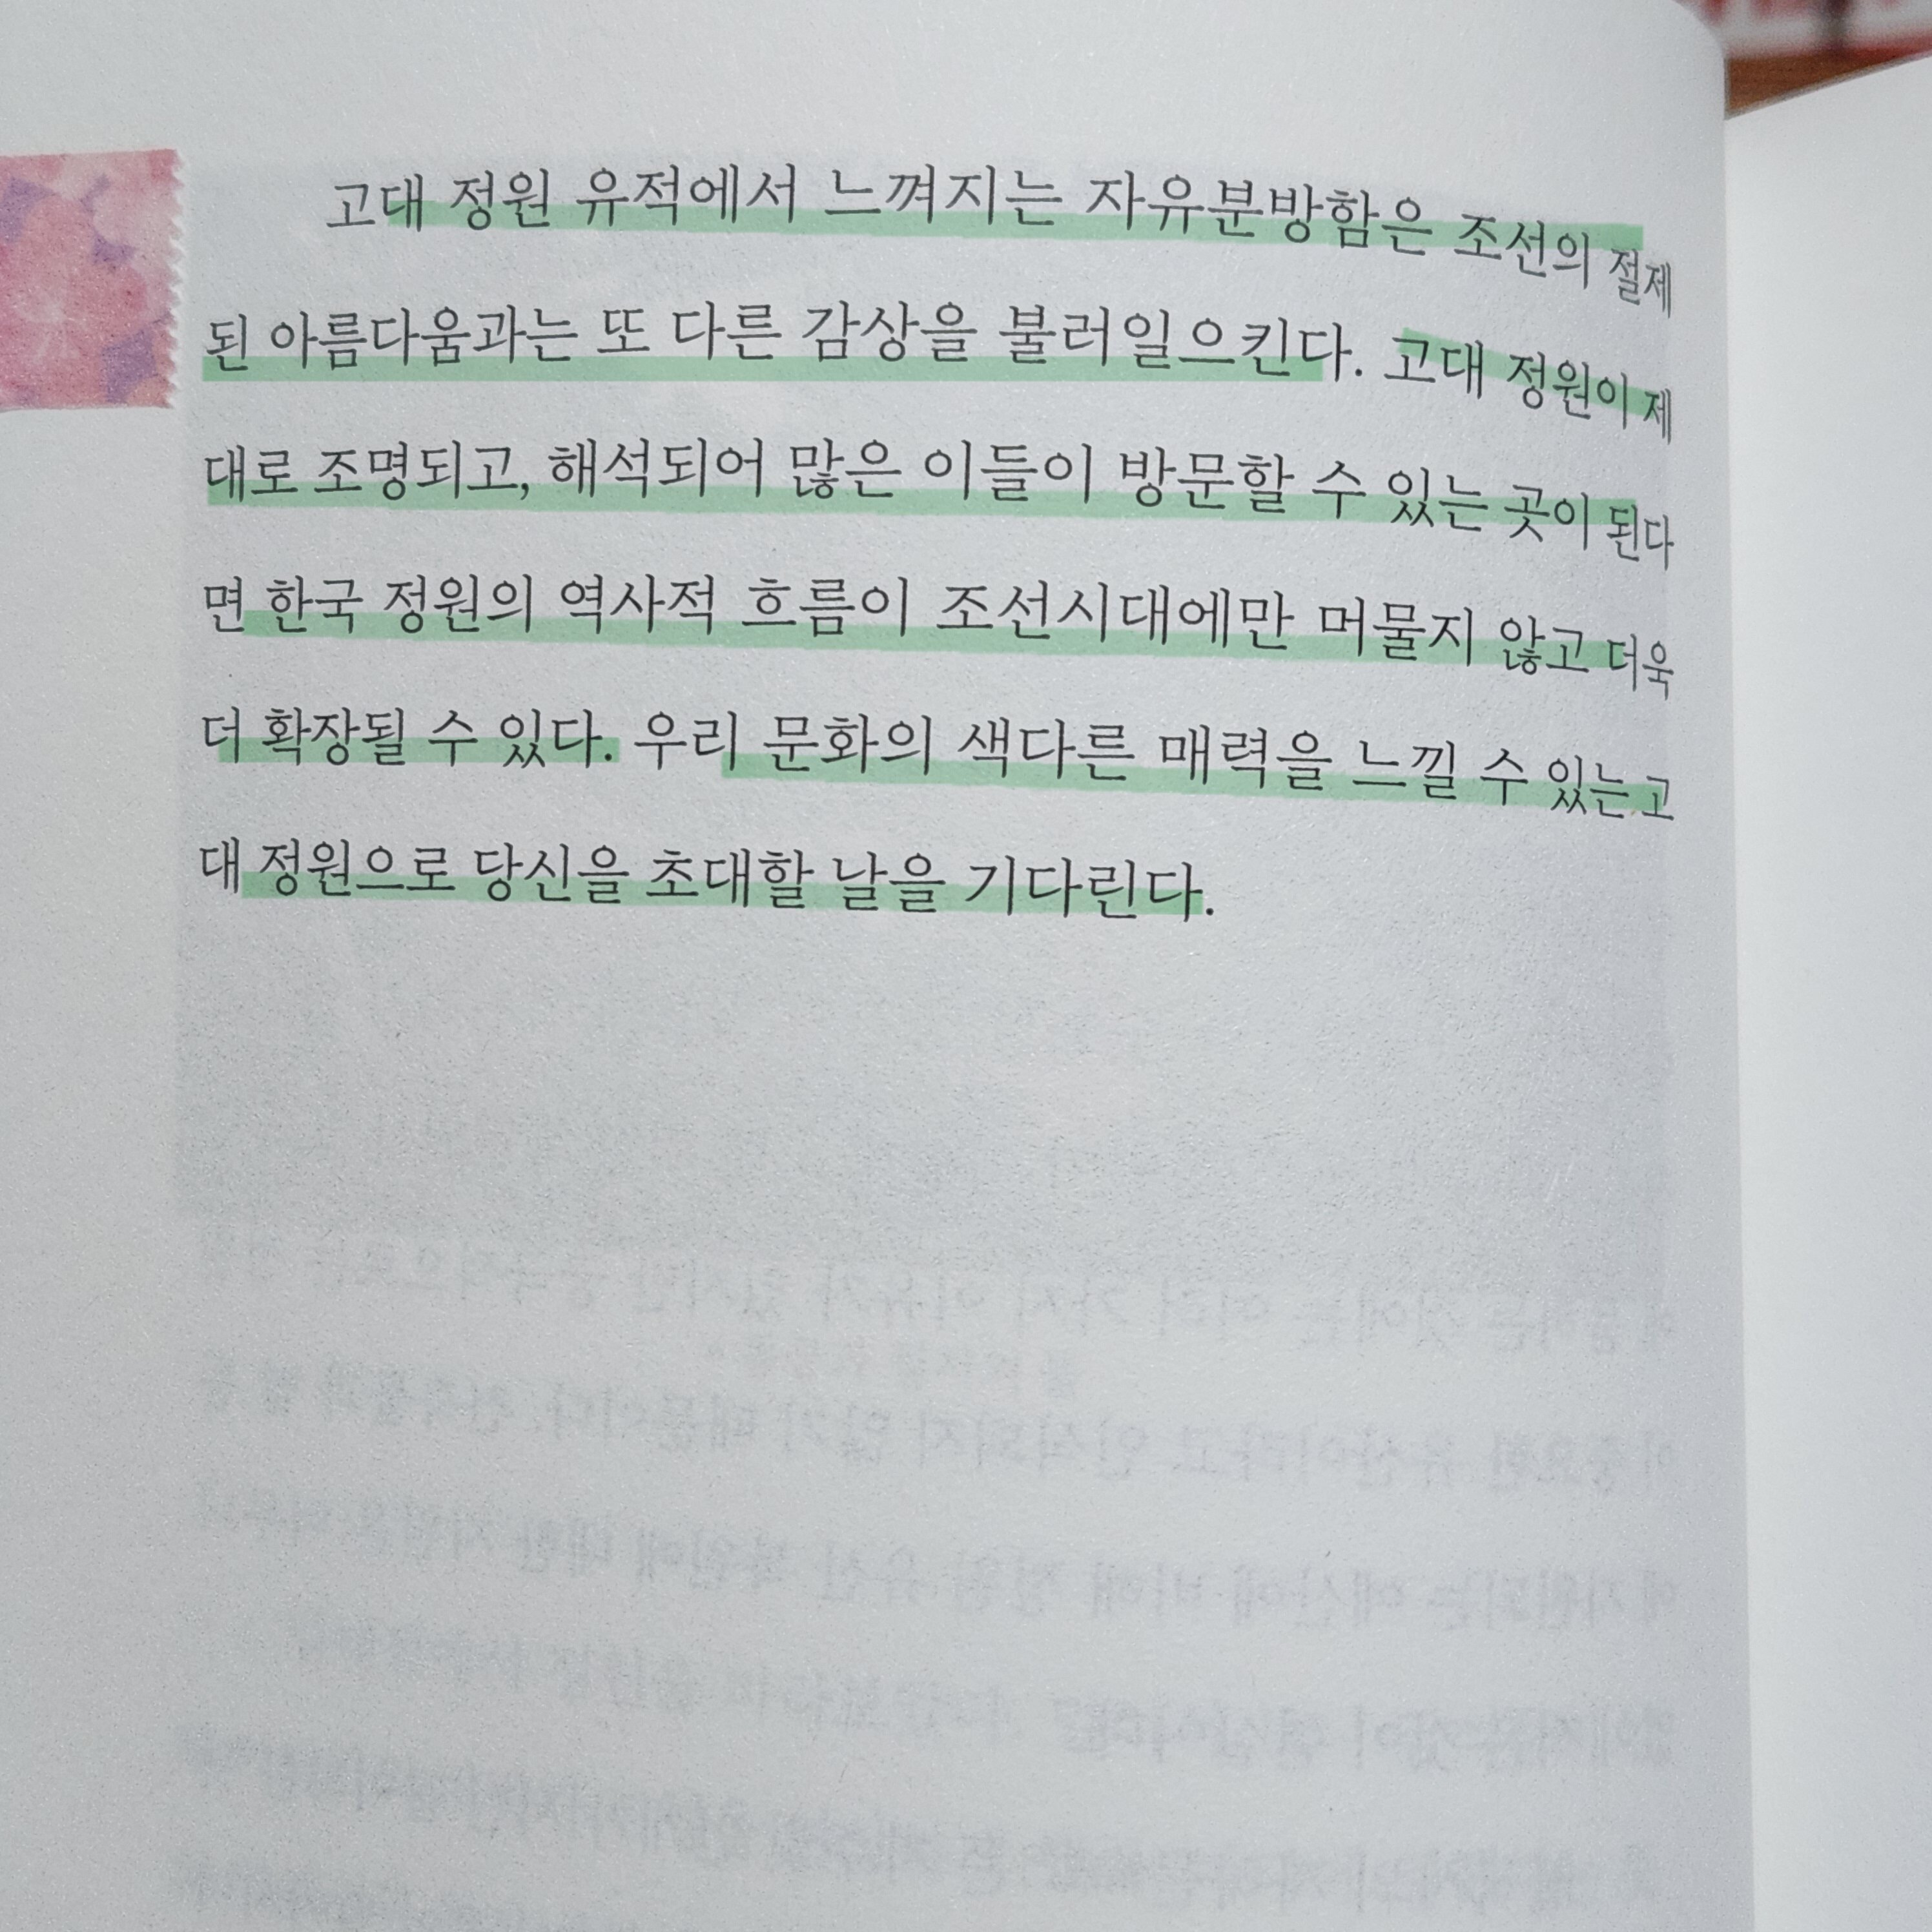 고대 정원 유적에서 느껴지는 자유분방함은 조선의 절제
된 아름다움과는 또 다른 감상을 불러일으킨다. 고대 정원이 제
대로 조명되고, 해석되어 많은 이들이 방문할 수 있는 곳이 된다
면 한국 정원의 역사적 흐름이 조선시대에만 머물지 않고 더욱
더 확장될 수 있다. 우리 문화의 색다른 매력을 느낄 수 있는 고
대 정원으로 당신을 초대할 날을 기다린다.